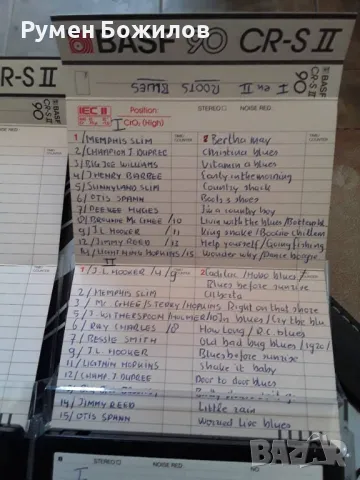 Румен Божилов
BASF 90 CR-S II
BLUES ROOTS I en II
BASF CR-S II 90
CR-S II 90
IEC II Position: I CrO2 (High)
STEREO NOISE RED.
1/ MEMPHIS SLIM 1 Bertha may
2/ CHAMPION J. DUPREE Christina blues
3/ BIG JOE WILLIAMS Vitamin a blues
4/ J. HENRY BARBEE Early in the morning
5/ SUNNYLAND SLIM Country shack
6/ OTIS SPANN Poots's shoes
7/ PEEWEE HUGES I'm a country boy
8/ BROWNIE Mc. GHEE /10 Live with the blues/Bottom bl
9/ J.L. HOOKER /11 King snake/Boogie Chillem
12/ JIMMY REED /13 Help yourself/Going fishing
14/ LIGHTNING HOPKINS /15 Wonder why/Dance boogie
II
1/ J.L. HOOKER /4/ 9 Hobo blues/
Blues before sunrise
2/ MEMPHIS SLIM Alberta
3/ Mc. GHEE/S.TERRY/HOPKINS Right on that shore
5/ J. WITHERSPOON blues/Cry the blu
6/ RAY CHARLES /8 How long/R.C. blues
7/ BESSIE SMITH Old bad bug blues/1930/
9/ J.L. HOOKER Blues before sunrise
11/ LIGTNIN HOPKINS Shake it baby
12/ CHAMP. J. DUPREE Door to door blues
14/ JIMMY REED Little rain
15/ OTIS SPANN Worried live blues
STEREO NOISE RED.
BAZAR